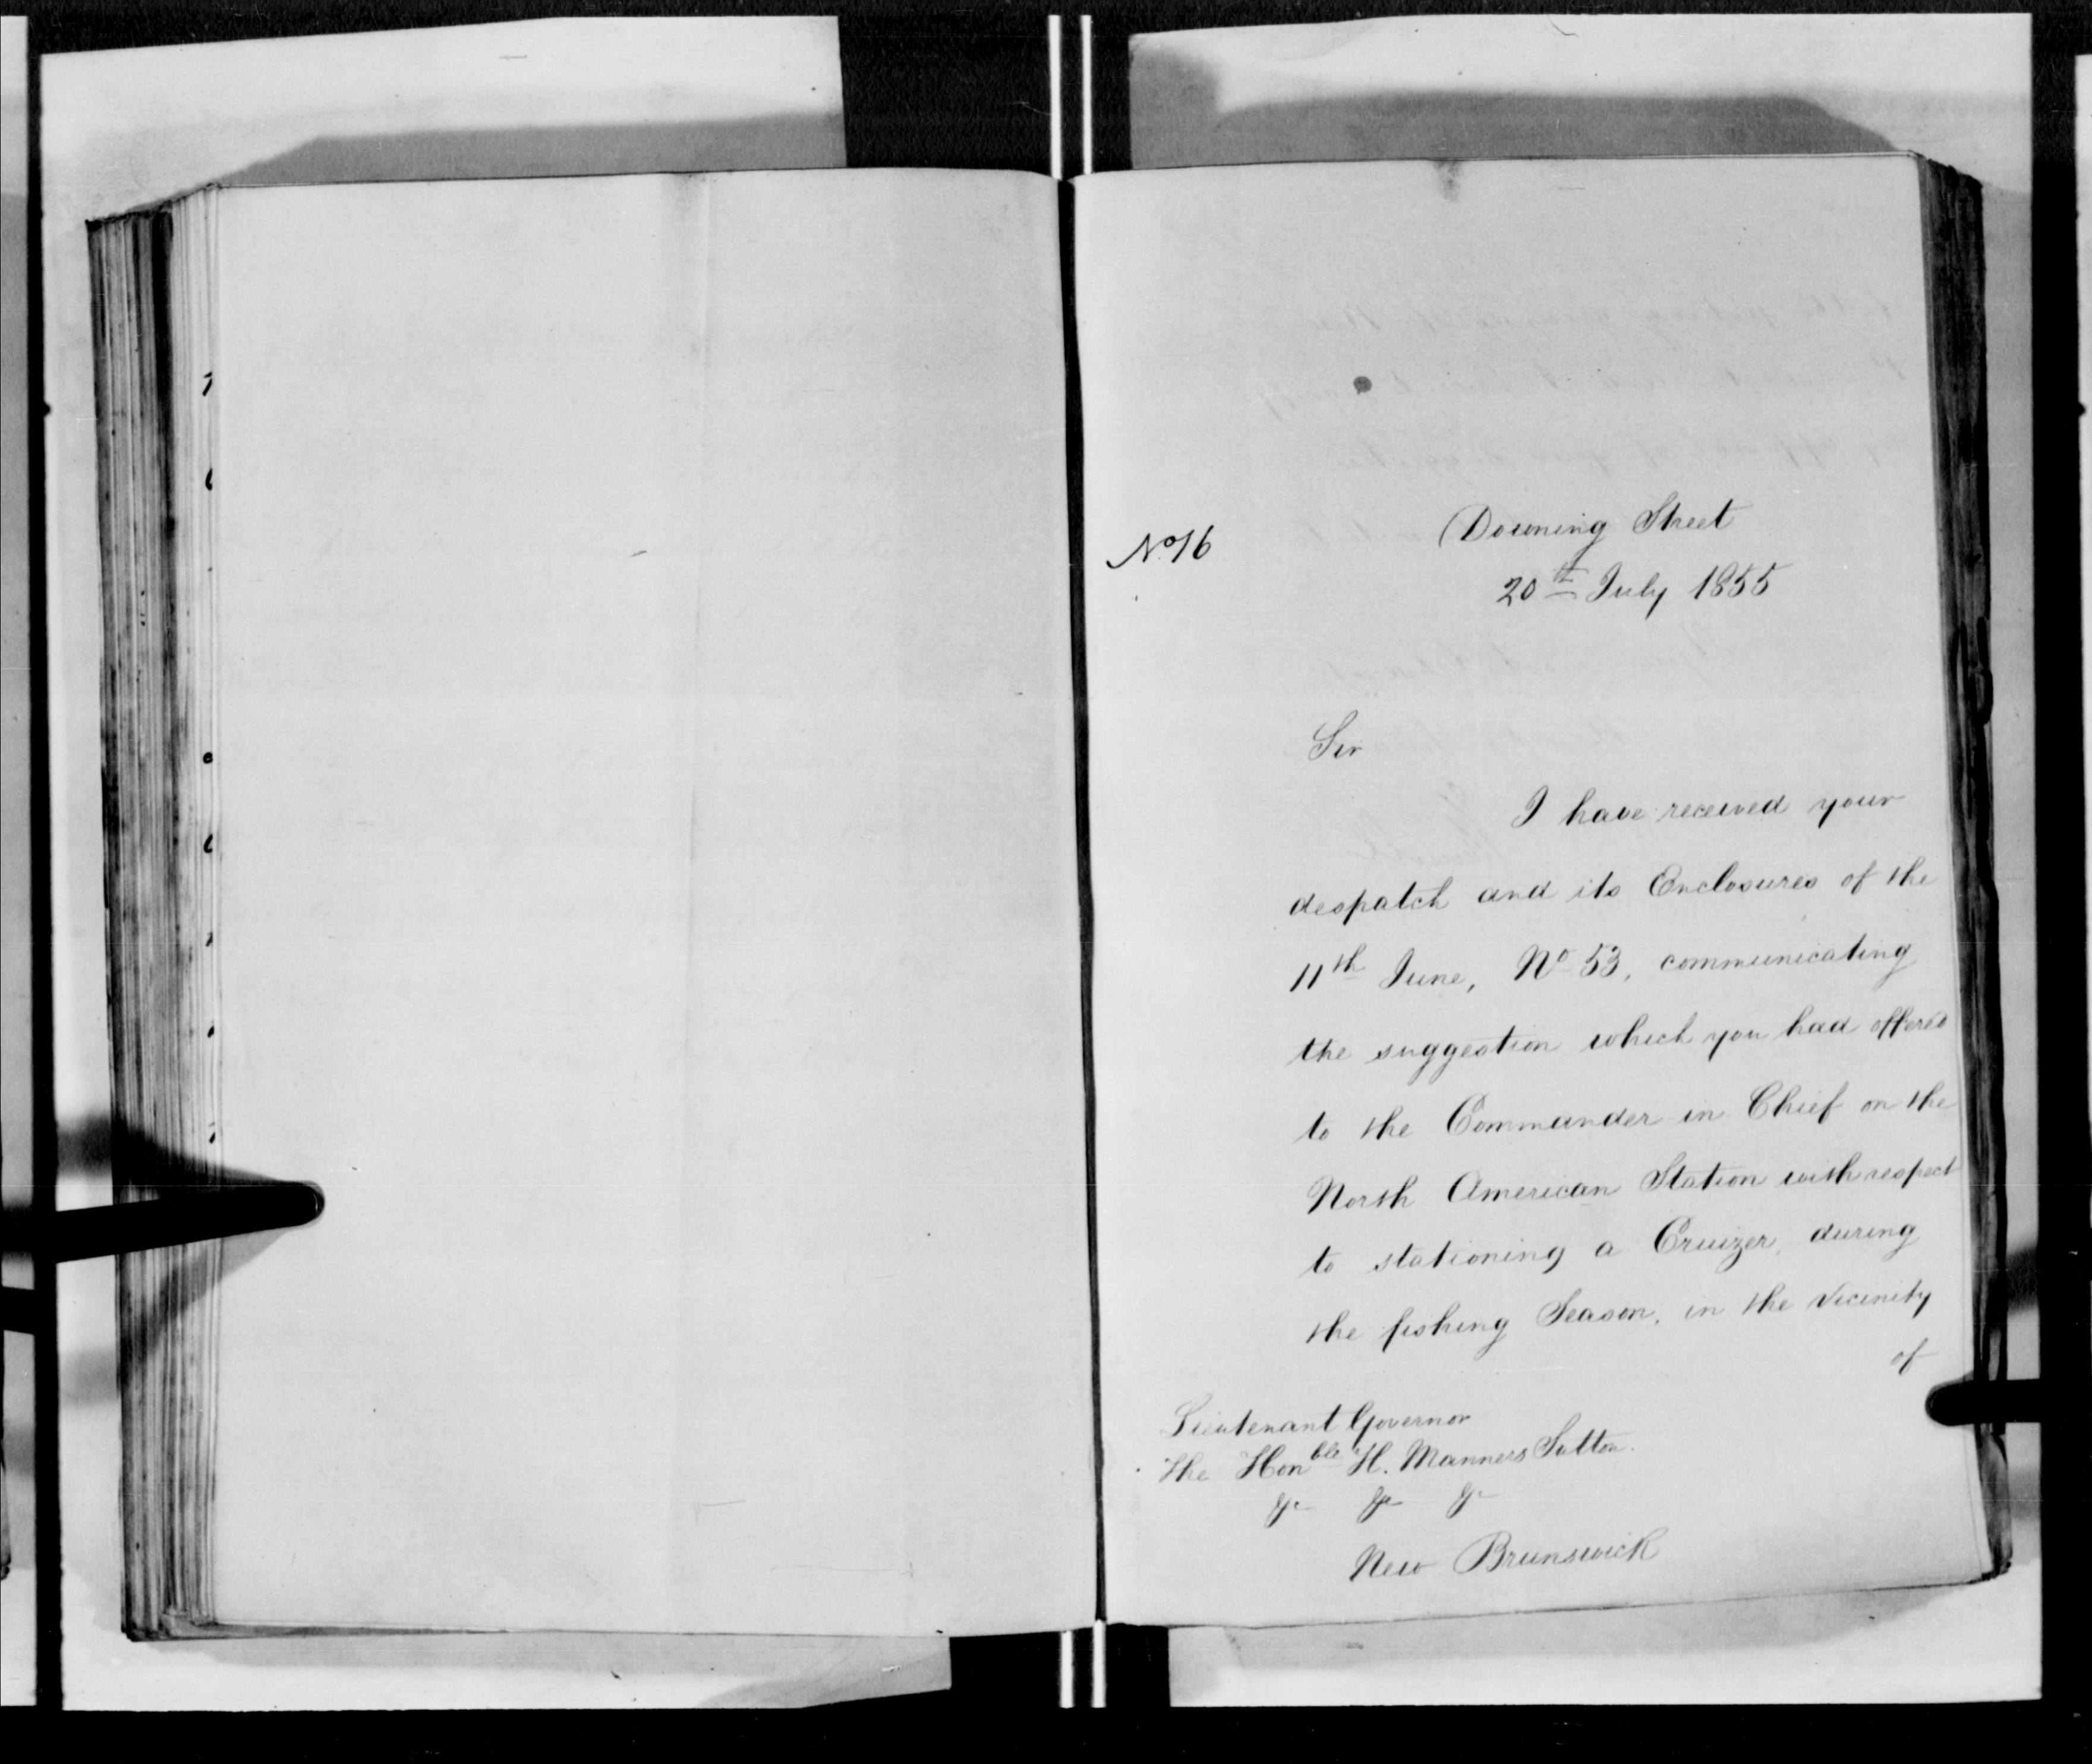 No. 16
Downing Street
20th July 1855
Sir
I have received your
despatch and its Enclosures of the
11th June, No 53, communicating
the suggestion which you had offered
to the Commander in Chief on the
North American Station with respect
to stationing a Cruizer, during
the fishing Season, in the vicinity
of
Lieutenant Governor
The Honble H. Manners Sutton.
&c &c &c
New Brunswick